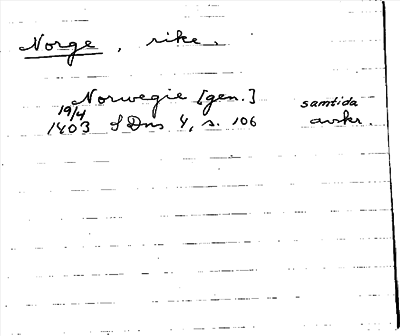 Norge, rike.
Norwegie [gen.] samtida
19/4
1403 SDns 4, s. 106 avskr.